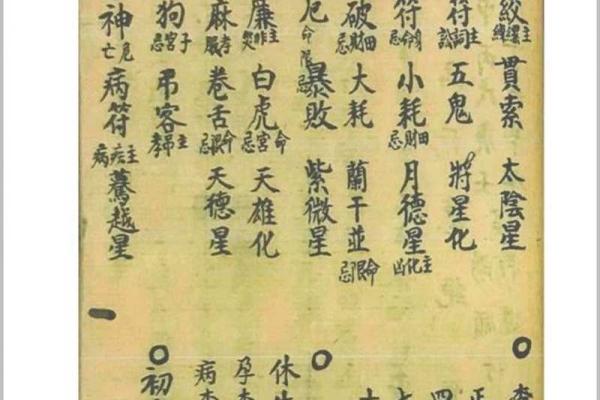 絞 貫索 太陰星
符 主詞訟 五鬼 將星化
符 小耗 田財忌 月德星 主化凶
破 田財忌 大耗 蘭干並 命限忌
厄 命限忌 暴敗 紫微星
白虎 命宮忌 天雄化
麻 孝服 卷舌 命限忌 天德星
狗 子宮忌 吊客 主弔孝
神 危亡 病符 主疾病 驀越星
四
休
孕
病
初